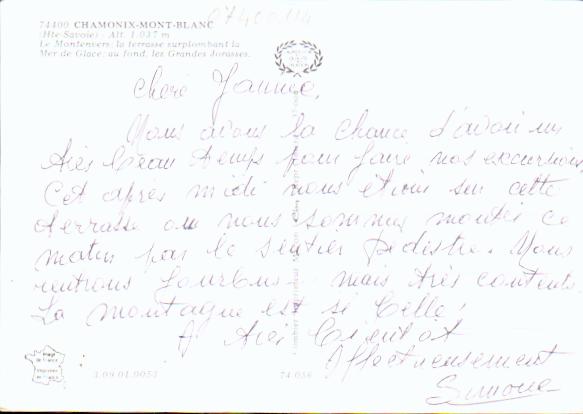 07400114
74400 CHAMONIX-MONT-BLANC
(Hte-Savoie) - Alt. 1.037 m
Le Montenvers: la terrasse surplombant la
Mer de Glace; au fond, les Grandes Jorasses.
Chère Jannie,
Nous avons la chance d'avoir un
très beau temps pour faire nos excursions
Cet après midi nous étions sur cette
terrasse où nous sommes montés ce
matin par le sentier pédestre. Nous
rentrons mais très contents
La montagne est si belle!
A très bientôt
Affectueusement
Simone
3.09.01.0053 74 056